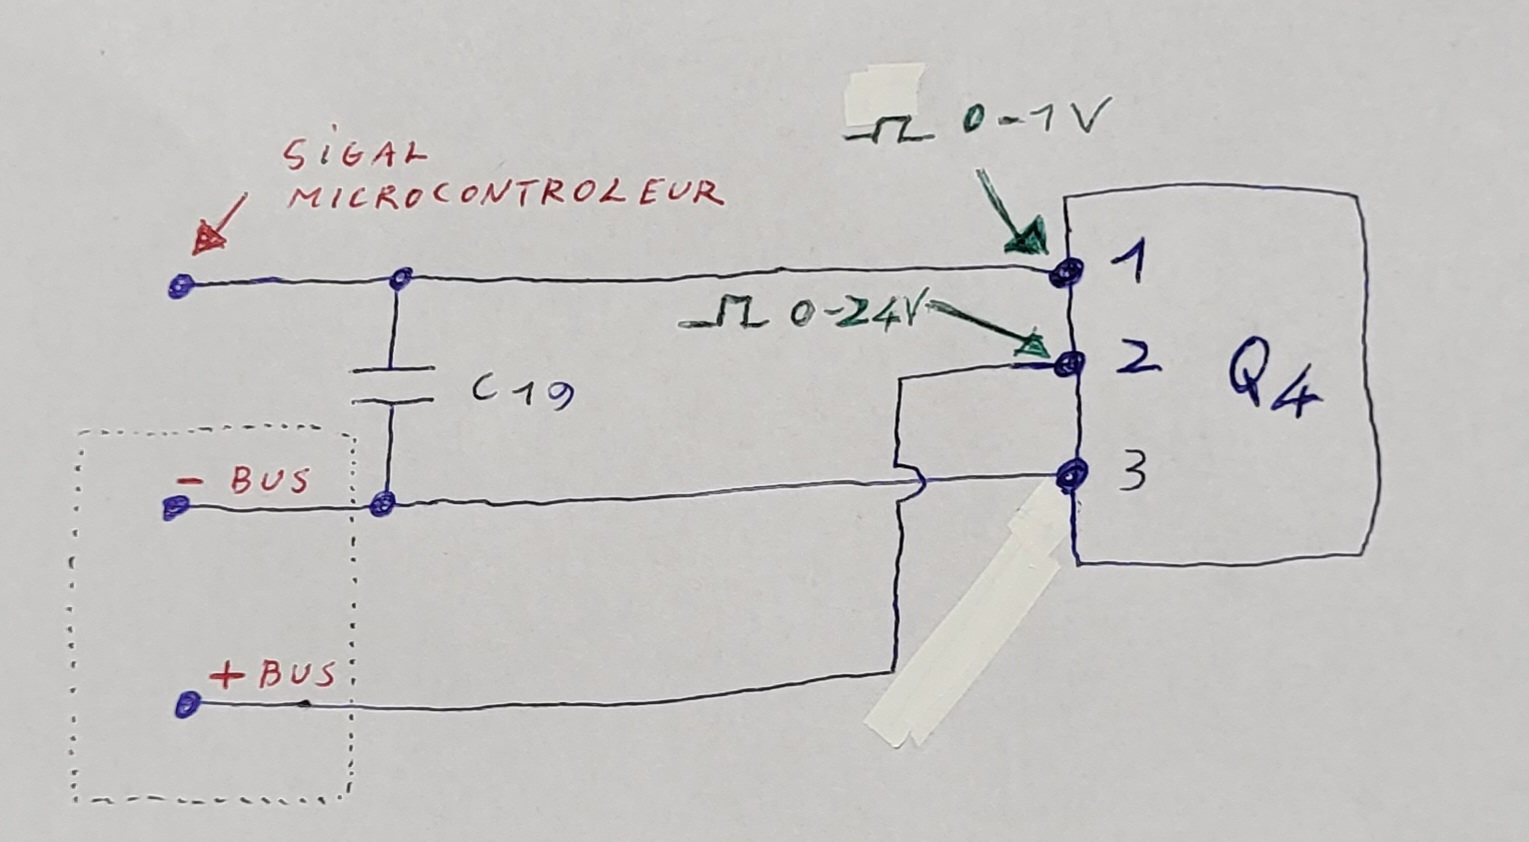 0-1V
SIGAL
MICROCONTROLEUR
1
0-24V
2
Q4
C19
3
- BUS
+ BUS